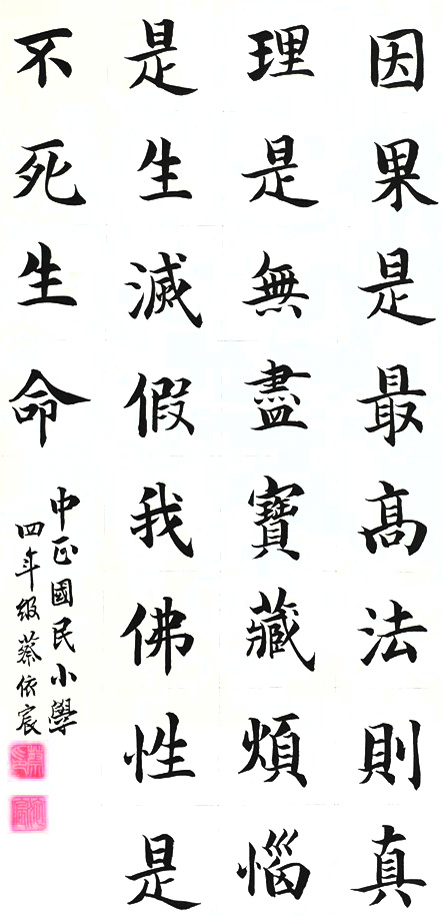 因果是最高法則真
理是無盡寶藏煩惱
是生滅假我佛性是
不死生命
中正國民小學
四年級蔡依宸